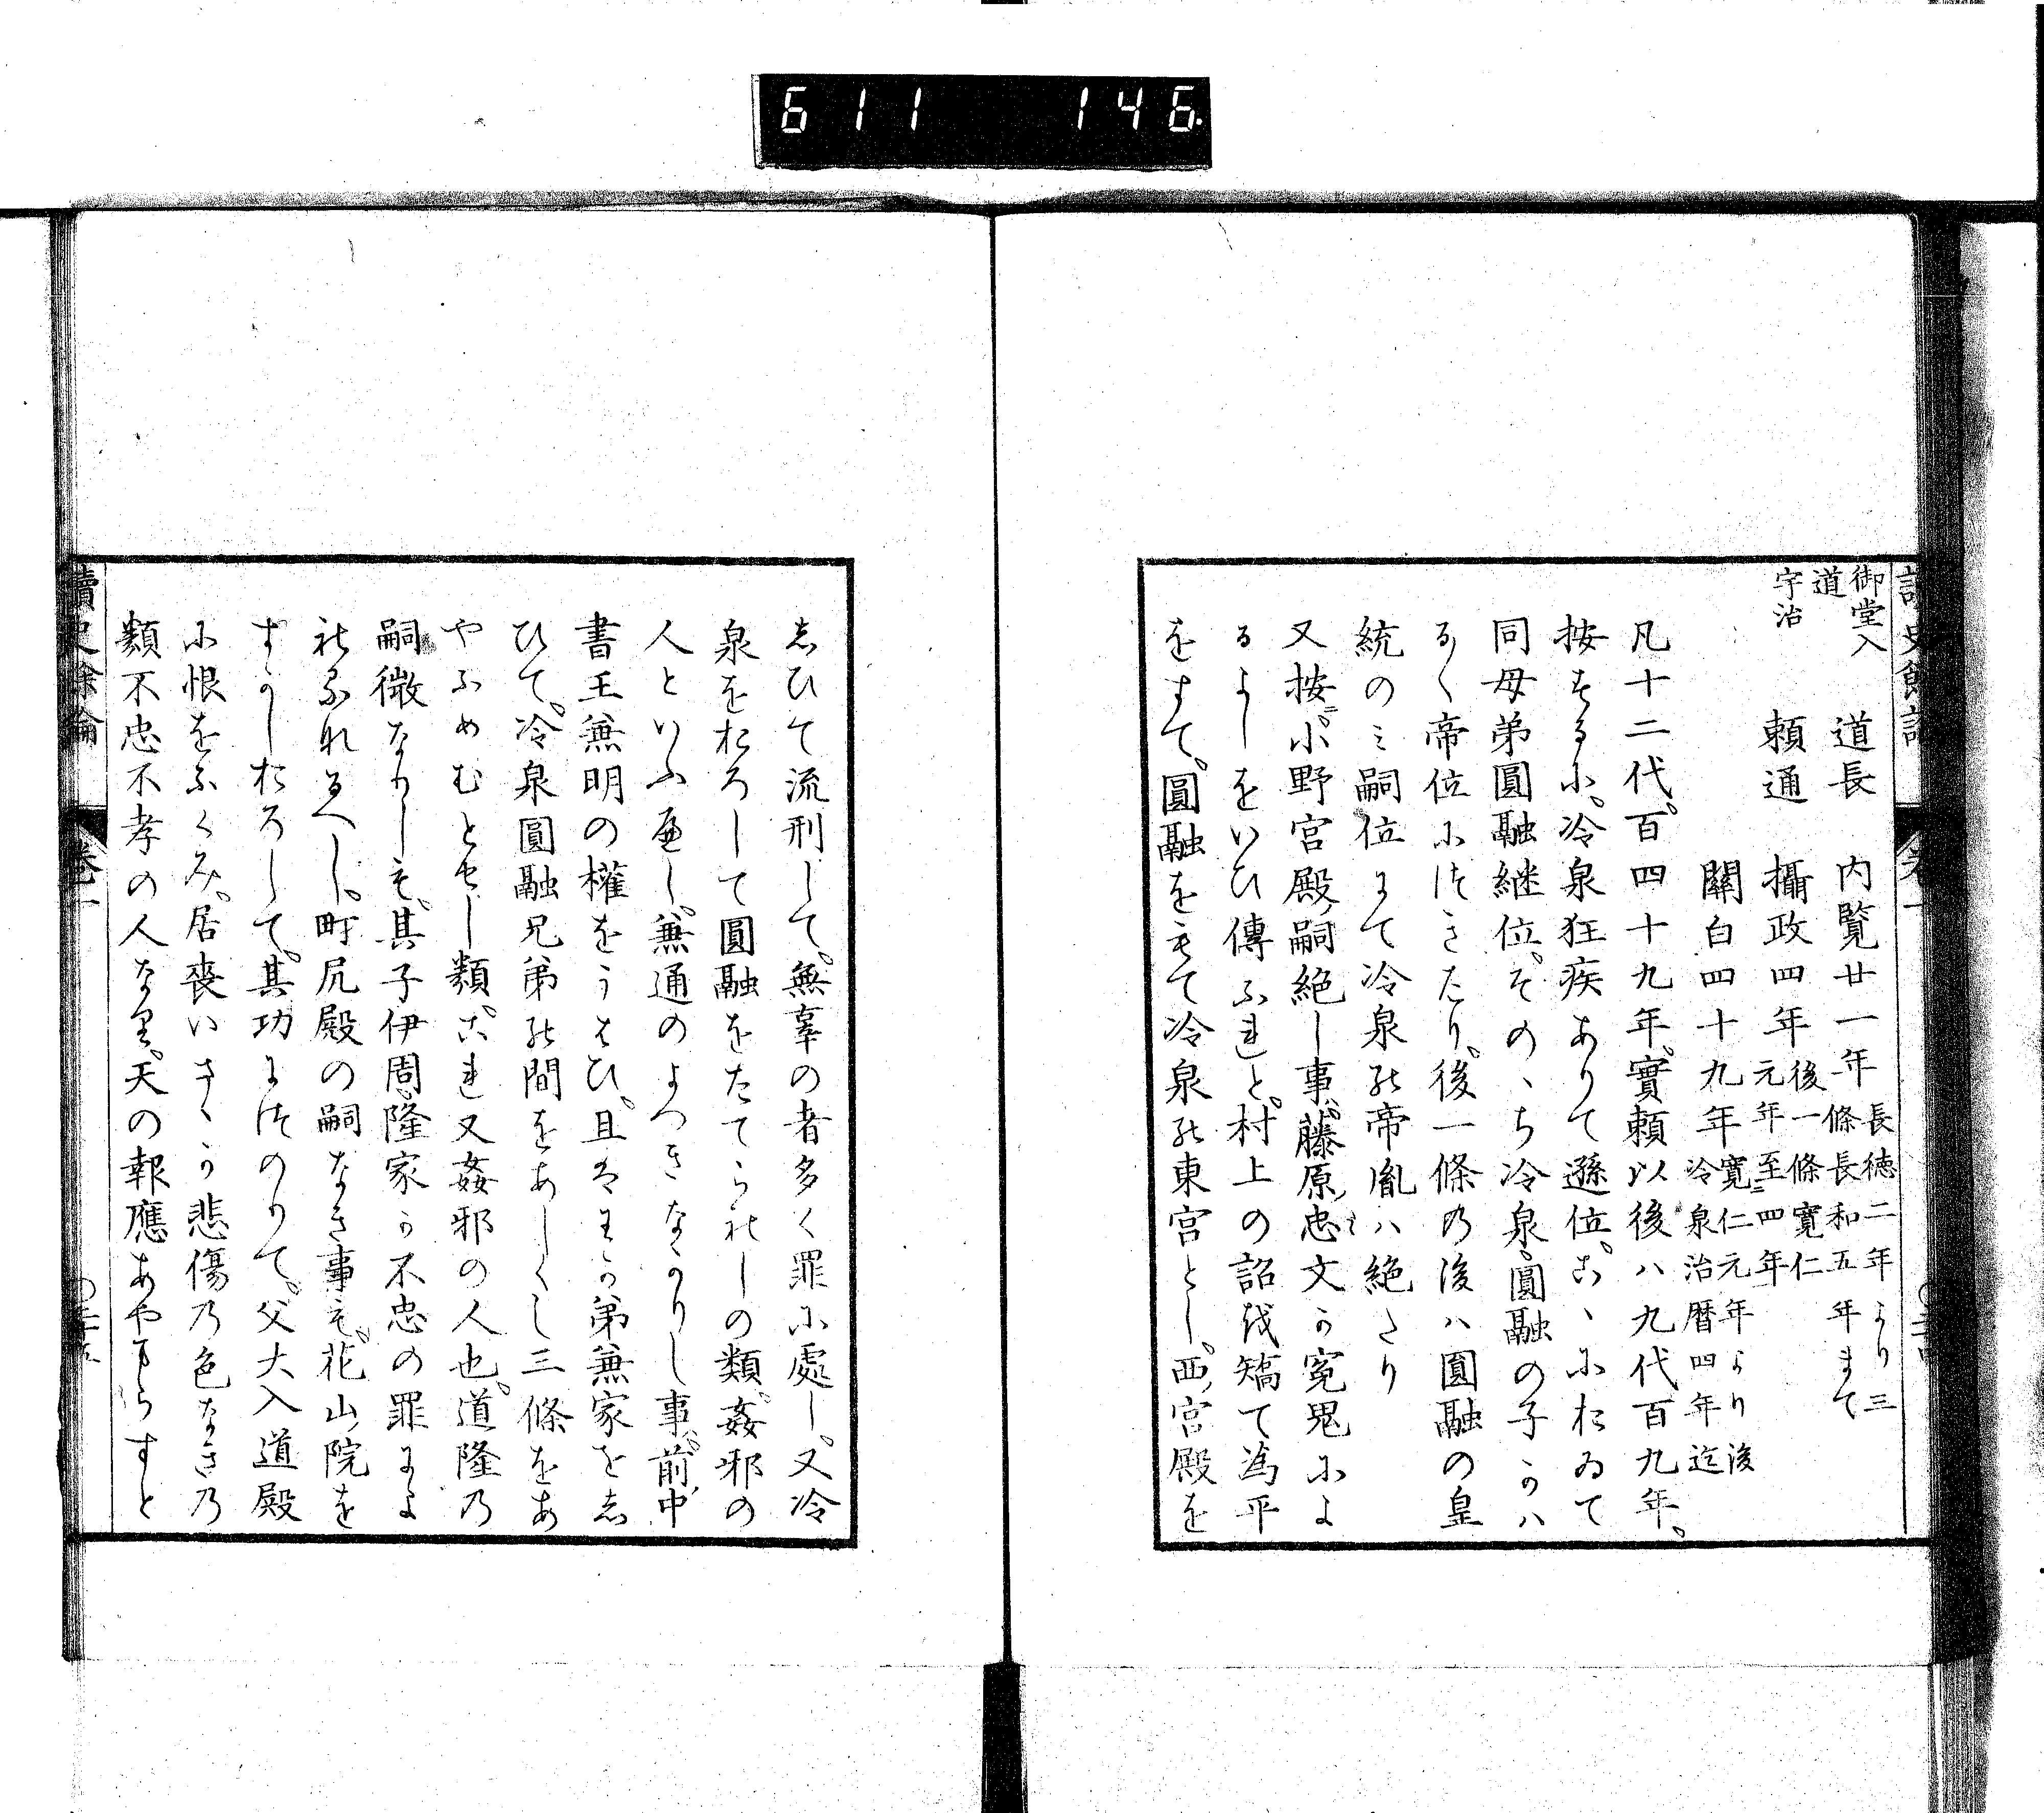 611 146.
御堂入道 道長 内覧廿一年 長徳二年より三條長和五年まて
宇治 頼通 攝政四年 後一條寛仁元年至四年
關白四十九年 寛仁元年より後冷泉治暦四年迄
凡十二代。百四十九年。實頼以後ハ九代百九年。
按するに。冷泉狂疾ありて遜位。こゝにおゐて
同母弟圓融継位。そのゝち冷泉圓融の子かハ
るく帝位につきたり。後一條の後ハ圓融の皇
統のミ嗣位まて冷泉の帝胤ハ絶たり
又按。小野宮殿嗣絶し事。藤原忠文か寃鬼によ
るよしをいひ傳ふれと。村上の詔を矯て為平
をすて。圓融をもて冷泉の東宮とし。西宮殿を
しひて流刑して。無辜の者多く罪に處し。又冷
泉をおろして圓融をたてられしの類。姦邪の
人といふへし。兼通のよつきなかりし事。前中
書王兼明の權をうはひ。且はわか弟兼家をし
ひて。冷泉圓融兄弟の間をあしくし三條をあ
やふめむとせし類。これ又姦邪の人也。道隆の
嗣微なりしも。其子伊周隆家か不忠の罪によ
れるなるへし。町尻殿の嗣なき事も。花山院を
すかしおろして。其功につのりて。父大入道殿
に恨をふくみ。居喪いさゝか悲傷の色なきの
類不忠不孝の人なり。天の報應あやまらすと
讀史餘論 卷一